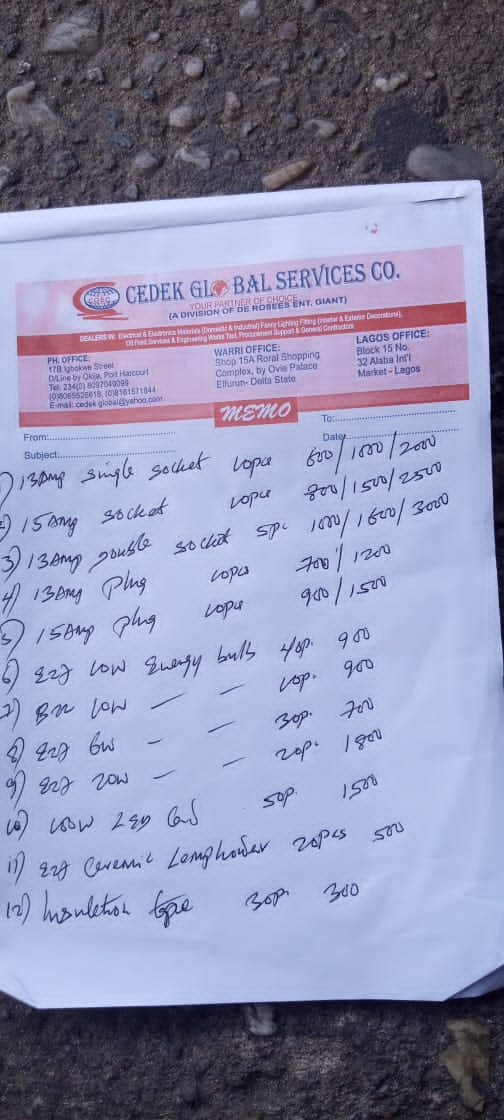 CEDEK GLOBAL SERVICES CO.
YOUR PARTNER OF CHOICE
(A DIVISION OF DE ROSEES ENT. GIANT)
DEALERS IN: Electrical & Electronics Materials (Domestic & Industrial) Fancy Lighting Fitting (Interior & Exterior Decorations),
Oil Field Services & Engineering Works Tool, Procurement Support & General Contractors
PH. OFFICE:
17B Igbokwe Street
D/Line by Okija, Port Harcourt
Tel: 234(0) 8097049099
(0)8065525618, (0)8161571844
E-mail: cedek global@yahoo.com
WARRI OFFICE:
Shop 15A Roral Shopping
Complex, by Ovie Palace
Effurun- Delta State
LAGOS OFFICE:
Block 15 No.
32 Alaba Int'l
Market - Lagos
MEMO
From:
To:
Subject:
Date
1) 13Amp single socket 10pcs 600/1000/2000
2) 15Amp socket 10pcs 800/1500/2500
3) 13Amp double socket 5pc 1000/1600/3000
4) 13Amp plug 10pcs 700/1200
5) 15Amp plug 10pcs 900/1500
6) E27 10W Energy bulb 40p. 900
7) B22 10W — — 10p. 900
8) E27 6W — — 30p. 700
9) E27 20W — — 20p. 1800
10) 100W LED 50p. 1500
11) E27 Ceremic Lampholder 20pcs 500
12) Insulation tape 30p. 300